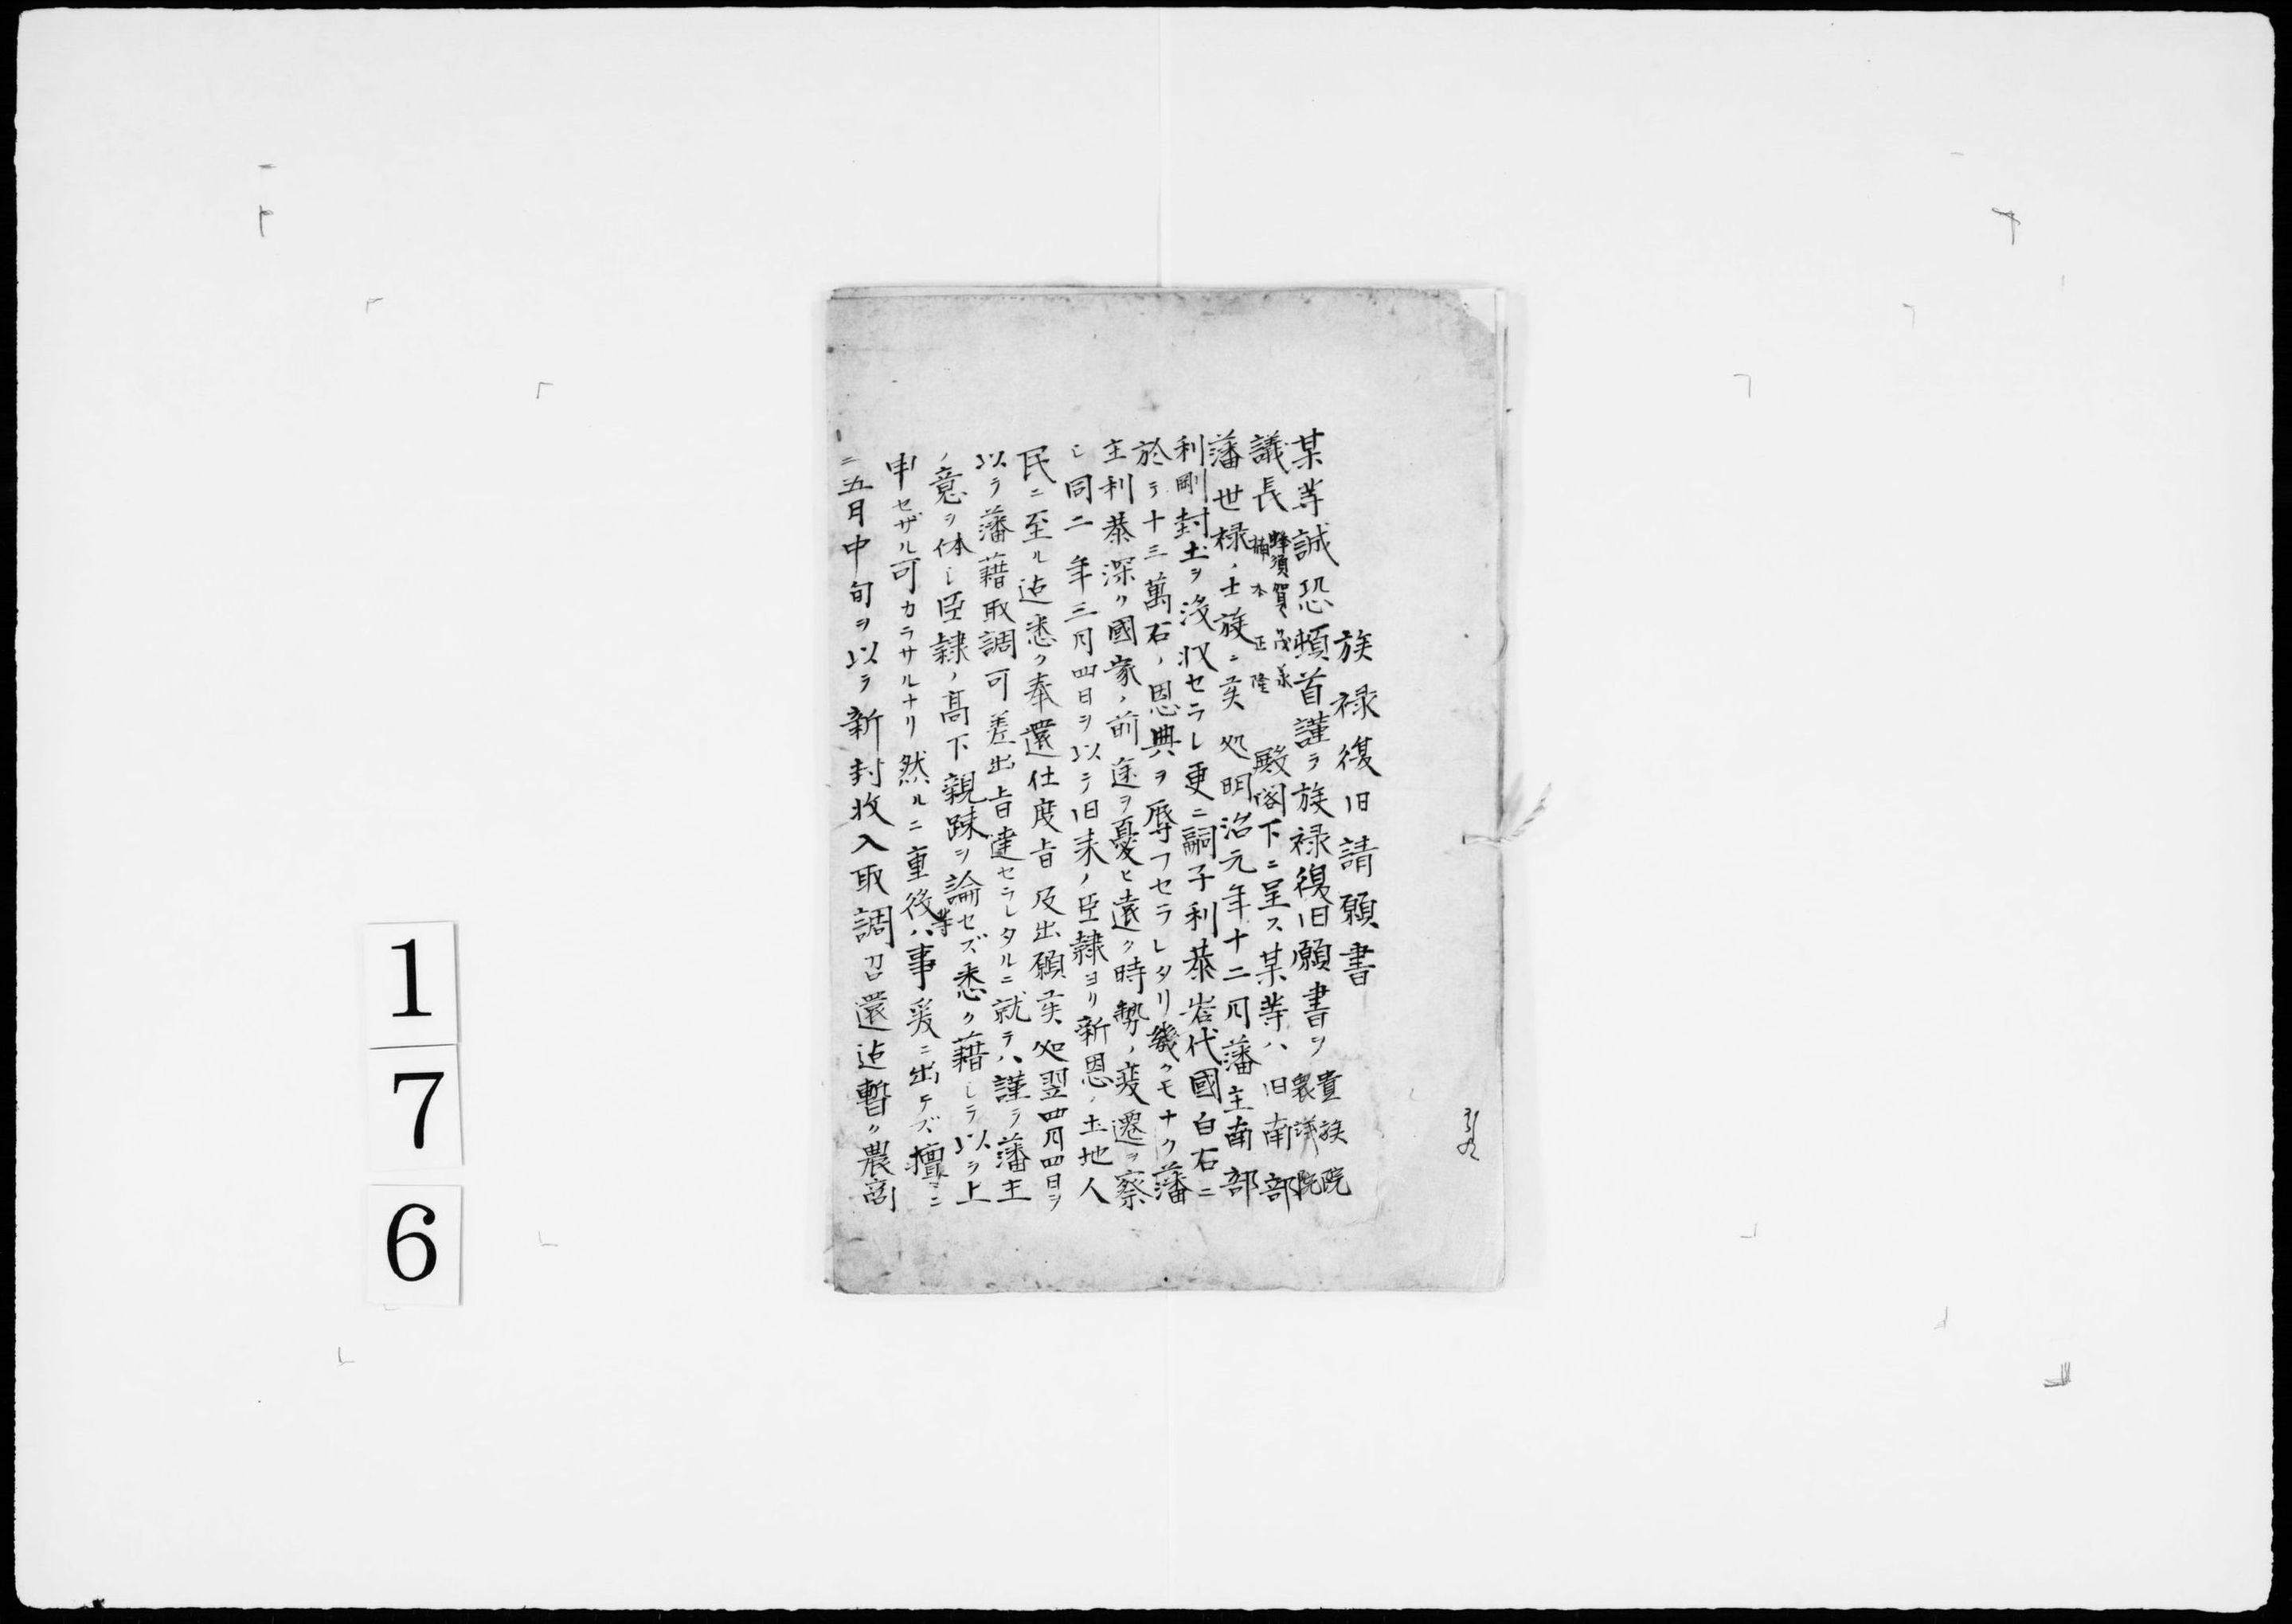 族禄復旧請願書
某等誠恐頓首謹テ族禄復旧願書ヲ貴族院衆議院
議長蜂須賀茂韶楠本正隆殿閣下ニ呈ス某等ハ旧南部
藩世禄ノ士族ニ候処明治元年十二月藩主南部
利剛封土ヲ没収セラレ更ニ嗣子利恭岩代國白石ニ
於テ十三萬石ノ恩典ヲ辱フセラレタリ幾クモナク藩
主利恭深ク國家ノ前途ヲ憂ヒ遠ク時勢ノ変遷ヲ察
シ同二年三月四日ヲ以テ旧来ノ臣隷ヨリ新恩ノ土地人
民ニ至ル迠悉ク奉還仕度旨及出願候処翌四月四日ヲ
以テ藩籍取調可差出旨達セラレタルニ就テハ謹テ藩主
ノ意ヲ体シ臣隷ノ髙下親踈ヲ論セズ悉ク藉シテ以テ上
申セザル可カラサルナリ然ルニ重役等ハ事爰ニ出テズ擅ニ
ニ五月中旬ヲ以テ新封收入取調召還迠暫ク農商
176